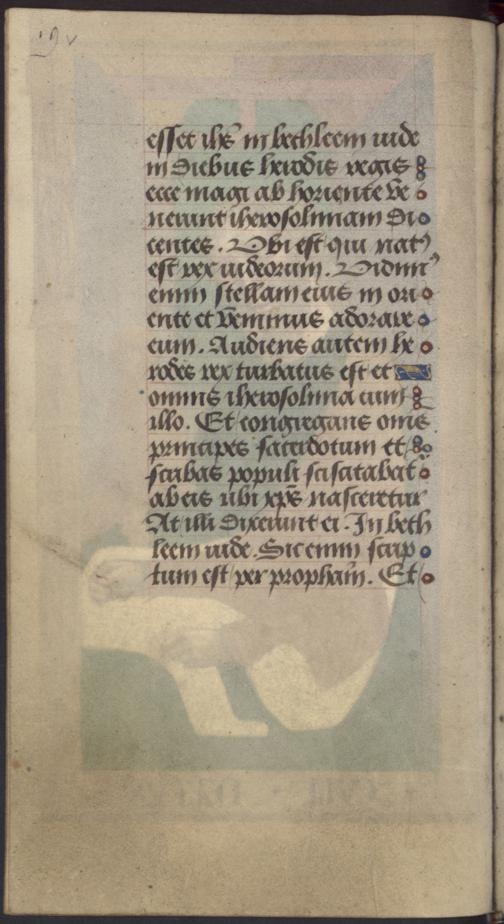 19v
esset ihs̄ in bethleem iude
in diebus herodis regis
ecce magi ab horiente ve
nerunt iherosolimam di
centes. Vbi est qui natꝰ
est rex iudeorum. Vidimꝰ
enim stellam eius in ori
ente et venimus adorare
eum. Audiens autem he
rodes rex turbatus est et
omnis iherosolima cum
illo. Et congregans om̄s
principes sacerdotum et
scribas populi sciscitabat᷑
ab eis ubi xp̄s nasceretur
At illi dixerunt ei. In beth
leem iude. Sic enim scrip
tum est per propham̄. Et